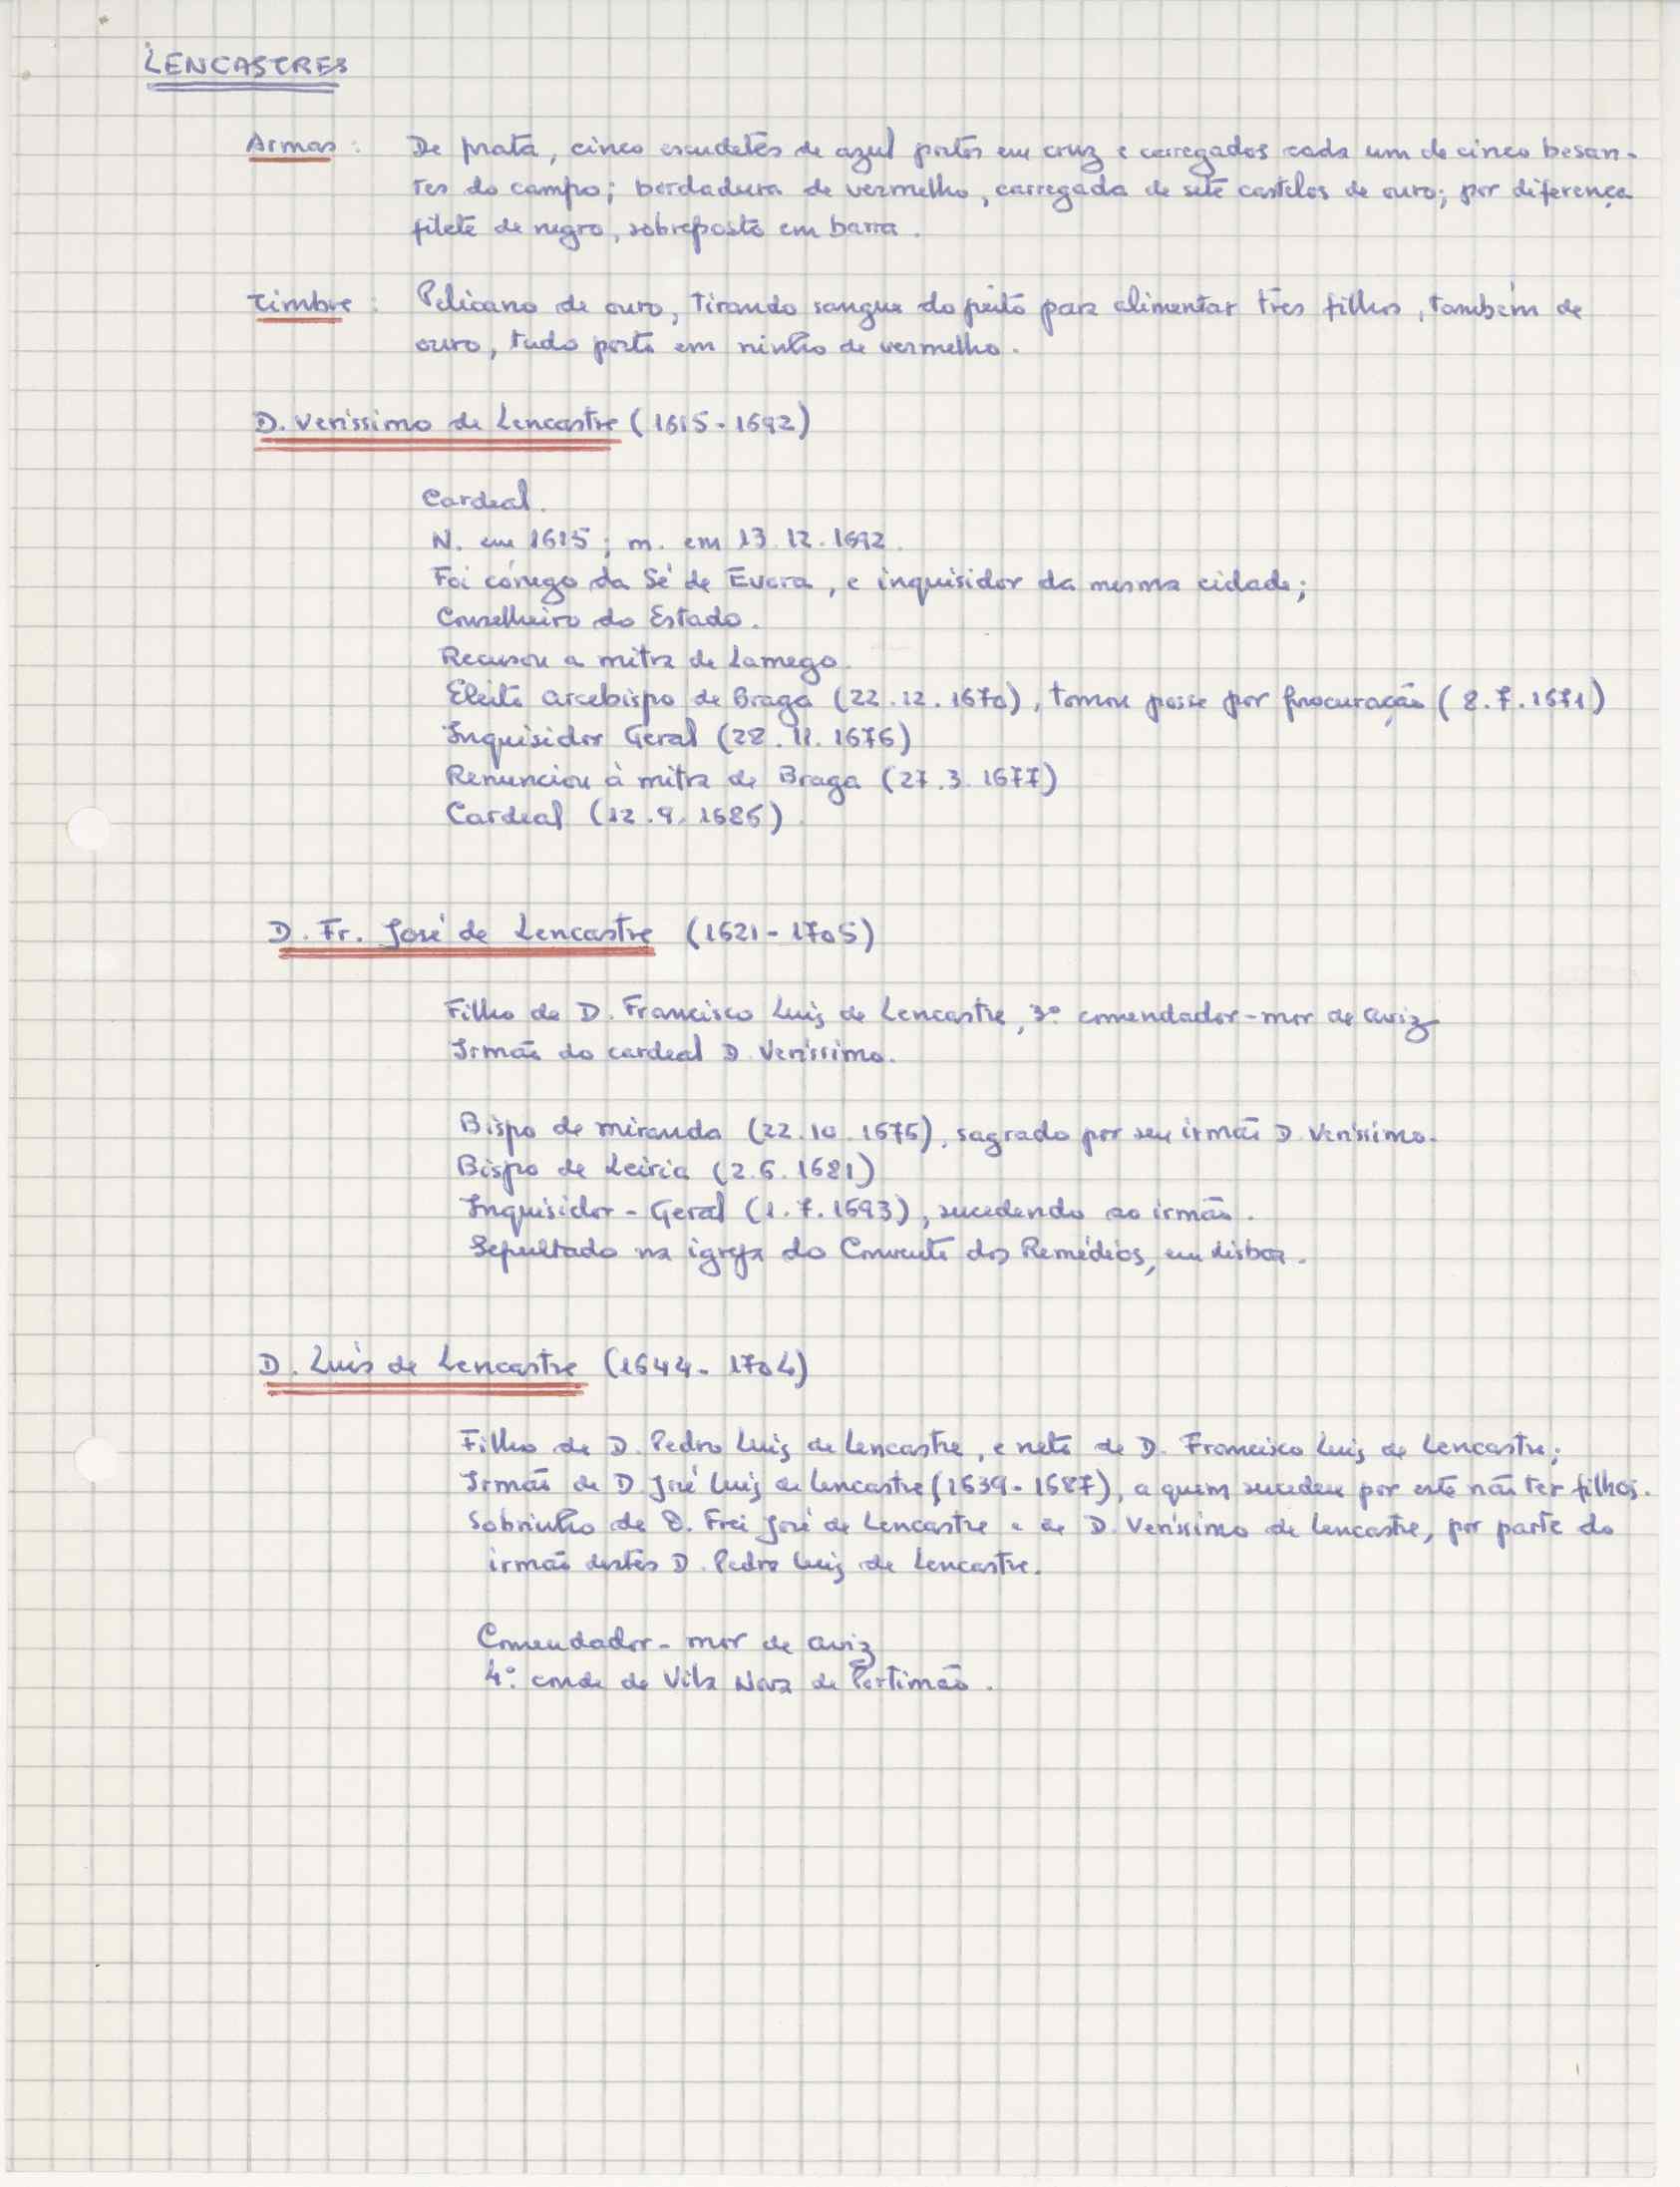 LENCASTRES
Armas : De prata, cinco escudetes de azul postos em cruz e carregados cada um de cinco besan-
tes do campo; bordadura de vermelho, carregada de sete castelos de ouro; por diferença
filete de negro, sobreposto em barra.
Timbre : Pelicano de ouro, tirando sangue do peito para alimentar três filhos, também de
ouro, tudo posto em ninho de vermelho.
D. Veríssimo de Lencastre (1615-1692)
Cardeal.
N. em 1615; m. em 13.12.1692.
Foi cónego da Sé de Évora, e inquisidor da mesma cidade;
Conselheiro do Estado.
Recusou a mitra de Lamego.
Eleito arcebispo de Braga (22.12.1670), tomou posse por procuração (8.7.1671)
Inquisidor Geral (28.11.1676)
Renunciou à mitra de Braga (27.3.1677)
Cardeal (12.9.1686).
D. Fr. José de Lencastre (1621-1705)
Filho de D. Francisco Luiz de Lencastre, 3º comendador-mor de Aviz
Irmão do cardeal D. Veríssimo.
Bispo de Miranda (22.10.1676), sagrado por seu irmão D. Veríssimo.
Bispo de Leiria (2.6.1681)
Inquisidor-Geral (1.7.1693), sucedendo ao irmão.
Sepultado na igreja do Convento dos Remédios, em Lisboa.
D. Luís de Lencastre (1644-1704)
Filho de D. Pedro Luiz de Lencastre, e neto de D. Francisco Luiz de Lencastre;
Irmão de D. José Luiz de Lencastre (1639-1687), a quem sucedeu por este não ter filhos.
Sobrinho de D. Frei José de Lencastre e de D. Veríssimo de Lencastre, por parte do
irmão destes D. Pedro Luiz de Lencastre.
Comendador-mor de Aviz
4º. conde de Vila Nova de Portimão.